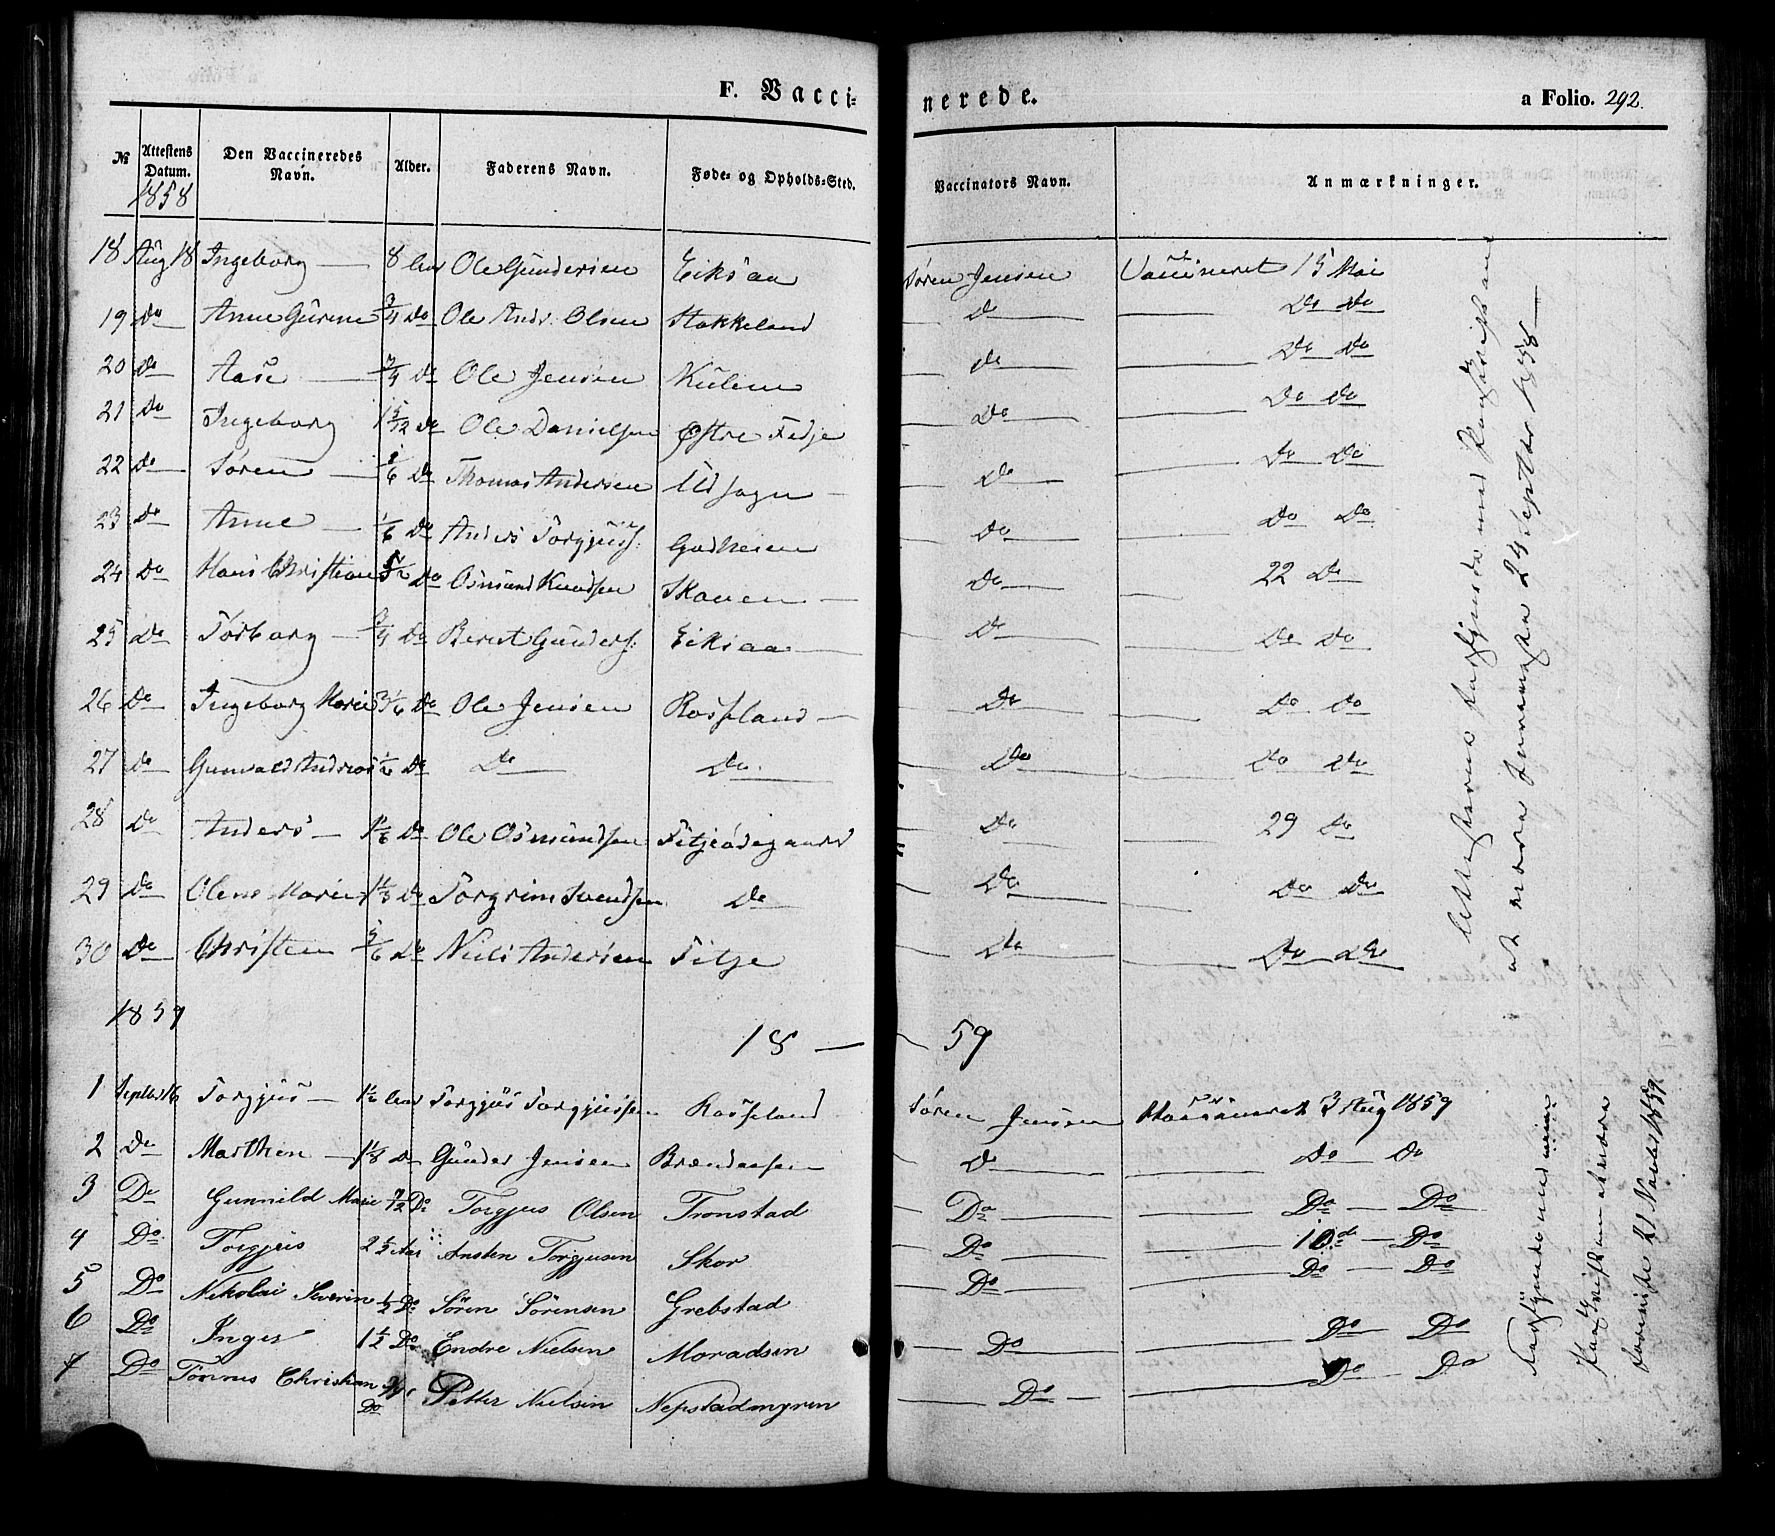 F. Vacci-nerede.
a Folio. 292.
№ Attestens Datum. Den Vaccineredes Navn. Alder. Faderens Navn. Føde- og Opholds-Sted. Vaccinators Navn. Anmærkninger.
1858
18 Aug 18 Ingeborg 8 Aar Ole Gundersen Eiksaa Søren Jensen Vaccineret 15 Mai
19 Do Anne Gurine 3/4 Do Ole Andr. Olsen Stokkeland Do Do Do
20 Do Aase 3/4 Do Ole Jensen Kulien Do Do Do
21 Do Ingeborg 1 5/12 Do Ole Danielsen Østre Fidje Do Do Do
22 Do Søren 1/6 Do Thomas Andersen Do Do Do
23 Do Anne 1/6 Do Anders Torgjuss. Godheien Do Do Do
24 Do Hans Christian Do Osmund Knudsen Skouen Do 22 Do
25 Do Torborg 3/4 Do Berent Gunders. Eiksaa Do Do Do
26 Do Ingeborg Marie 3 1/6 Do Ole Jensen Rosseland Do Do Do
27 Do Gunvald Andreas 1/6 Do Do Do Do Do Do
28 Do Anders 1 1/6 Do Ole Osmundsen Fitjeødegaard Do 29 Do
29 Do Olene Marie 1 1/3 Do Torgrim Svendsen Do Do Do Do
30 Do Christen 5/6 Do Niels Andersen Fitje Do Do Do
Attesterne med
at være 24 Septbr 1858
1859
18 — 59
1 Septbr 16 Torgjus 1 1/6 Aar Torgjus Torgjussen Rosseland Søren Jensen Vaccineret 3 Aug 1859
2 Do Marthen 1 1/8 Do Gunder Jensen Brændaasen Do Do Do
3 Do Gunnild Marie 7/12 Do Torgjus Olsen Tronstad Do Do Do
4 Do Torgjus 2 1/2 Aar Ansten Torgjusen Skor Do 10de Do
5 Do Nikolai Severin 1/2 Do Sören Sörensen Grebstad Do Do Do
6 Do Inger 1 1/2 Do Endre Nielsen Moradsen Do Do Do
7 Do Tönnes Christian 3/4 Do Petter Nielsen Nepstadmyren Do Do Do
1859